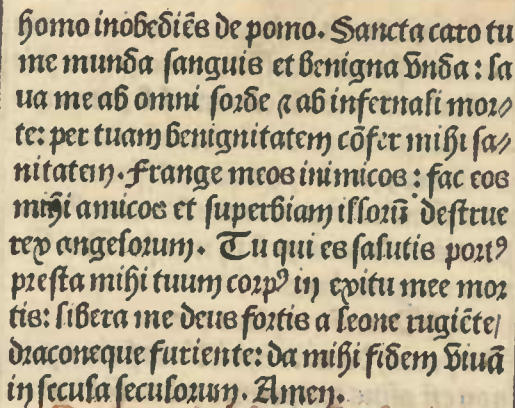 homo inobediēs de pomo. Sancta caro tu
me munda sanguis et benigna vnda: sa
ua me ab omni sorde ⁊ ab infernali mor⸗
te: per tuam benignitatem cōfer mihi sa⸗
nitatem. Frange meos inimicos: fac eos
mihi amicos et superbiam illorū destrue
rex angelorum. Tu qui es salutis portꝰ
presta mihi tuum corpꝰ in exitu mee mor
tis: libera me deus fortis a leone rugiēte/
draconeque furiente: da mihi fidem viuā
in secula seculorum. Amen.